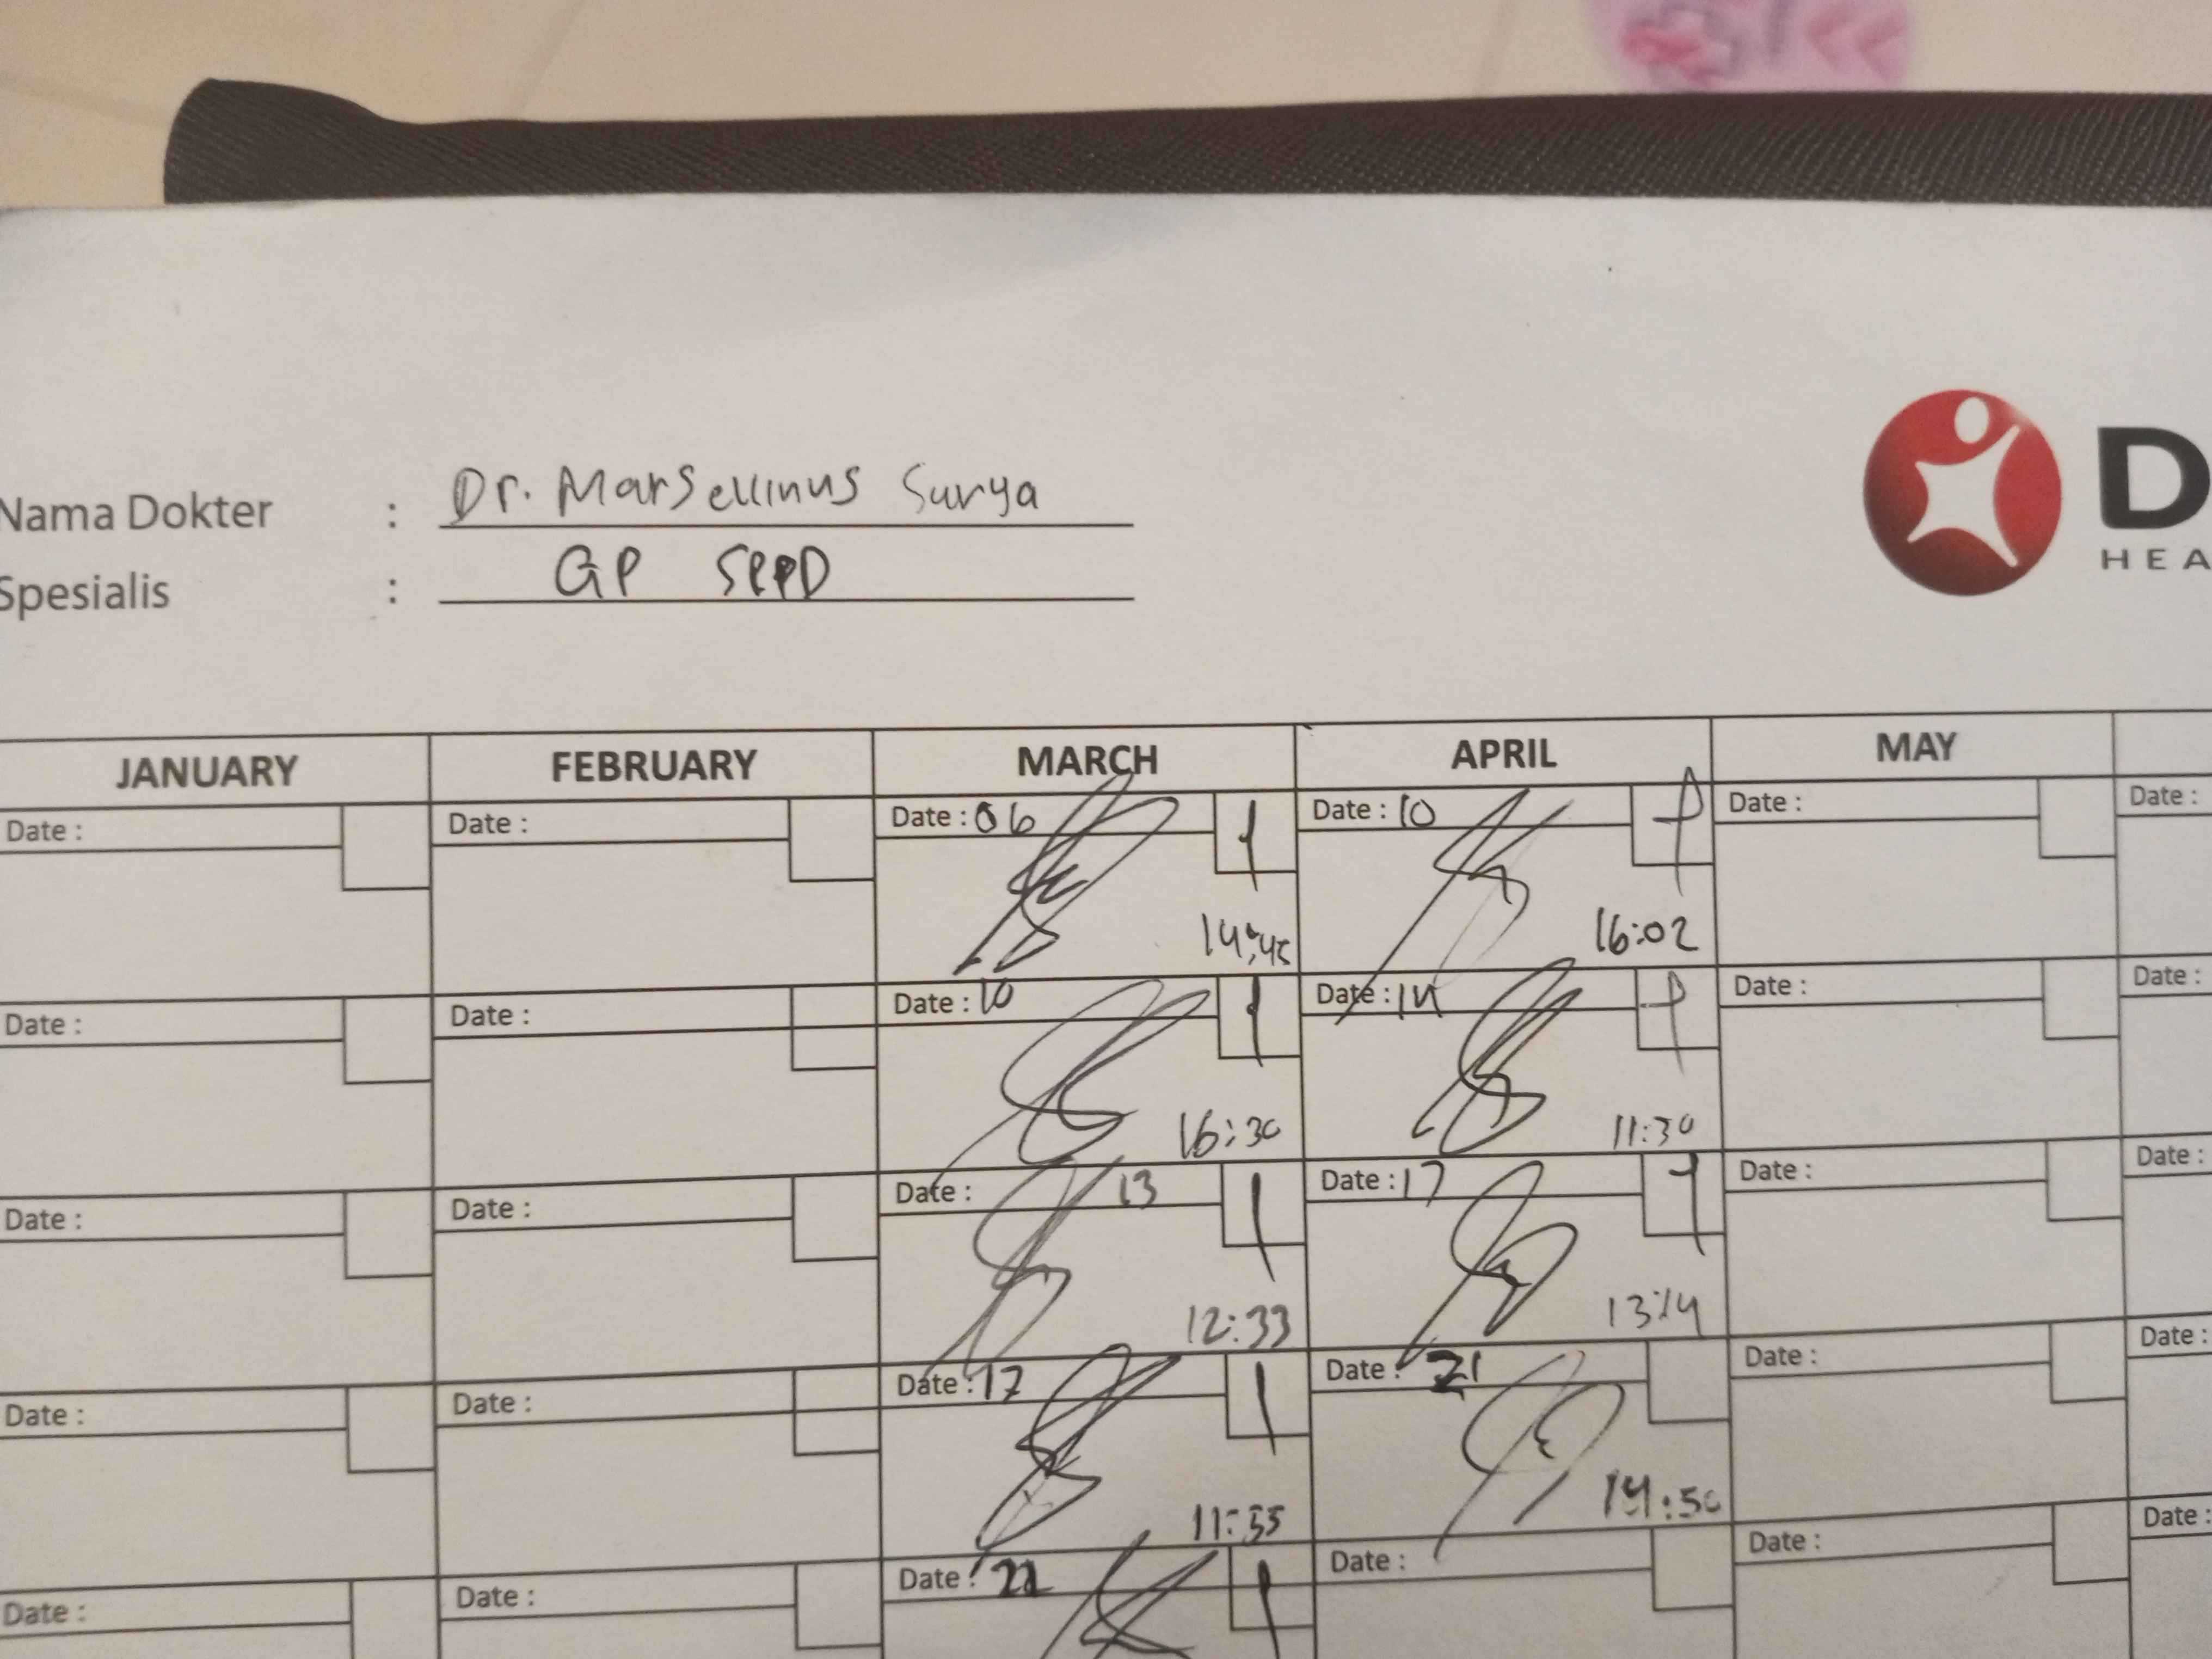 Nama Dokter : Dr. Marsellinus Surya
Spesialis : GP SPPD
D
HEA
JANUARY FEBRUARY MARCH APRIL MAY
Date : Date : Date : 06 Date : 10 Date : Date :
14:45 16:02
Date : Date : Date : 10 Date : 14 Date : Date :
16:30 11:30
Date : Date : Date : 13 Date : 17 Date : Date :
12:33 13:14
Date : Date : Date : 17 Date : 21 Date : Date :
11:35 14:50
Date : Date : Date : Date : Date : Date :